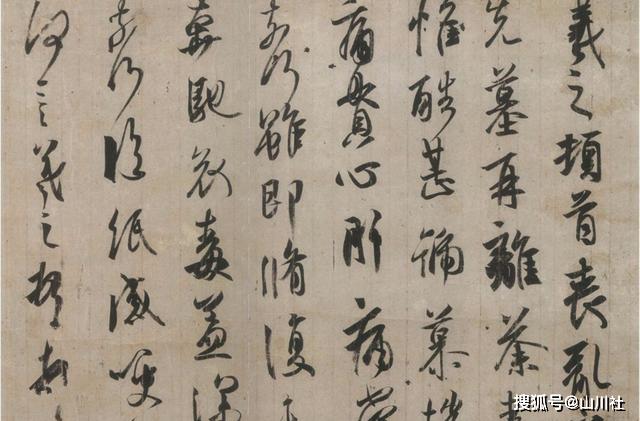 羲之頓首喪亂
先墓再離荼毒
惟酷甚號慕摧
痛貫心肝痛當
奈何雖即脩復
奔馳哀毒益深
奈何臨紙感哽
何言羲之頓首
搜狐号@山川社